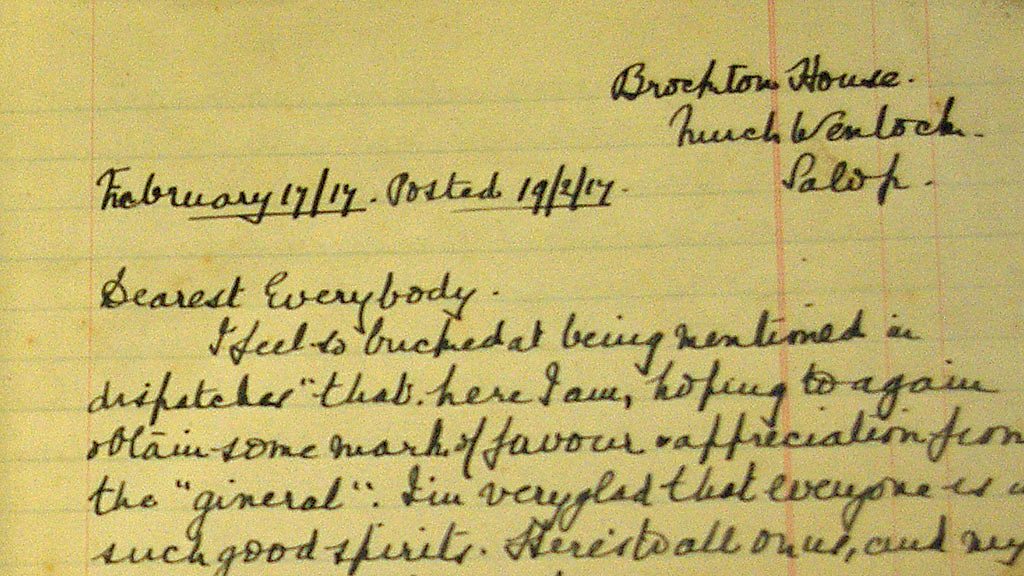 Brockton House.
Much Wenlock.
Salop.
February 17/17. Posted 19/2/17.
Dearest Everybody.
I feel so bucked at being mentioned in
dispatches" that here I am, hoping to again
obtain some mark of favour & appreciation from
the "gineral". I'm very glad that everyone is
such good spirits. Here's to all on us, and